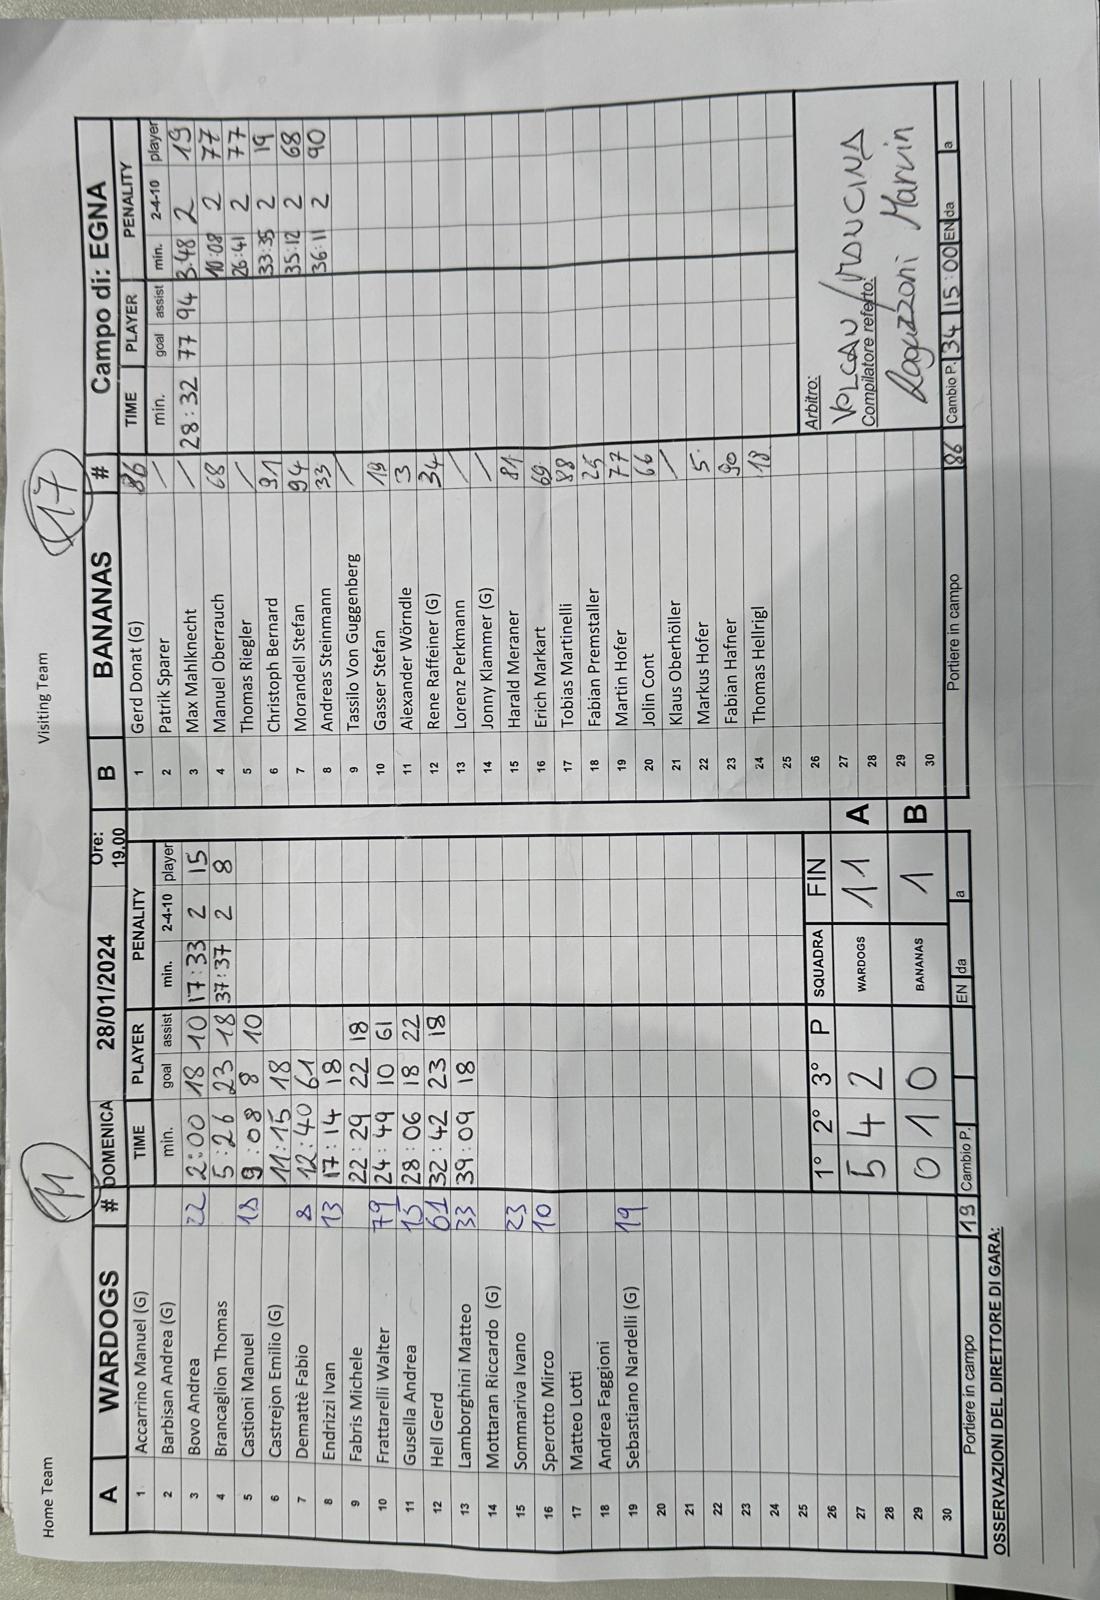 Home Team
11
Visiting Team
17
A WARDOGS # DOMENICA 28/01/2024 Ore: 19.00
TIME PLAYER PENALITY
min. goal assist min. 2-4-10 player
1 Accarrino Manuel (G)
2 Barbisan Andrea (G)
3 Bovo Andrea 22 2:00 18 10 17:33 2 15
4 Brancaglion Thomas 5:26 23 18 37:37 2 8
5 Castioni Manuel 18 9:08 8 10
6 Castrejon Emilio (G) 11:15 18
7 Demattè Fabio 8 12:40 61
8 Endrizzi Ivan 13 17:14 18
9 Fabris Michele 22:29 22 18
10 Frattarelli Walter 79 24:49 10 61
11 Gusella Andrea 15 28:06 18 22
12 Hell Gerd 61 32:42 23 18
13 Lamborghini Matteo 33 39:09 18
14 Mottaran Riccardo (G)
15 Sommariva Ivano 23
16 Sperotto Mirco 10
17 Matteo Lotti
18 Andrea Faggioni
19 Sebastiano Nardelli (G) 19
20
21
22
23
24
25
26
27
28
29
30
1° 2° 3° P SQUADRA FIN
5 4 2 WARDOGS 11 A
0 1 0 BANANAS 1 B
Portiere in campo 19 Cambio P. EN da a
B BANANAS # Campo di: EGNA
TIME PLAYER PENALITY
min. goal assist min. 2-4-10 player
1 Gerd Donat (G) 86
2 Patrik Sparer /
3 Max Mahlknecht / 28:32 77 94 3:48 2 19
4 Manuel Oberrauch 68 10:08 2 77
5 Thomas Riegler / 26:41 2 77
6 Christoph Bernard 91 33:35 2 19
7 Morandell Stefan 94 35:12 2 68
8 Andreas Steinmann 33 36:11 2 90
9 Tassilo Von Guggenberg /
10 Gasser Stefan 19
11 Alexander Wörndle 3
12 Rene Raffeiner (G) 34
13 Lorenz Perkmann /
14 Jonny Klammer (G) /
15 Harald Meraner 81
16 Erich Markart 69
17 Tobias Martinelli 88
18 Fabian Premstaller 25
19 Martin Hofer 77
20 Jolin Cont 66
21 Klaus Oberhöller /
22 Markus Hofer 5
23 Fabian Hafner 90
24 Thomas Hellrigl 18
25
26
27
28
29
30
Arbitro:
VOLCAN /
Compilatore referto:
Ragazzoni Marvin
Portiere in campo 86 Cambio P. 34 15:00 EN da a
OSSERVAZIONI DEL DIRETTORE DI GARA: